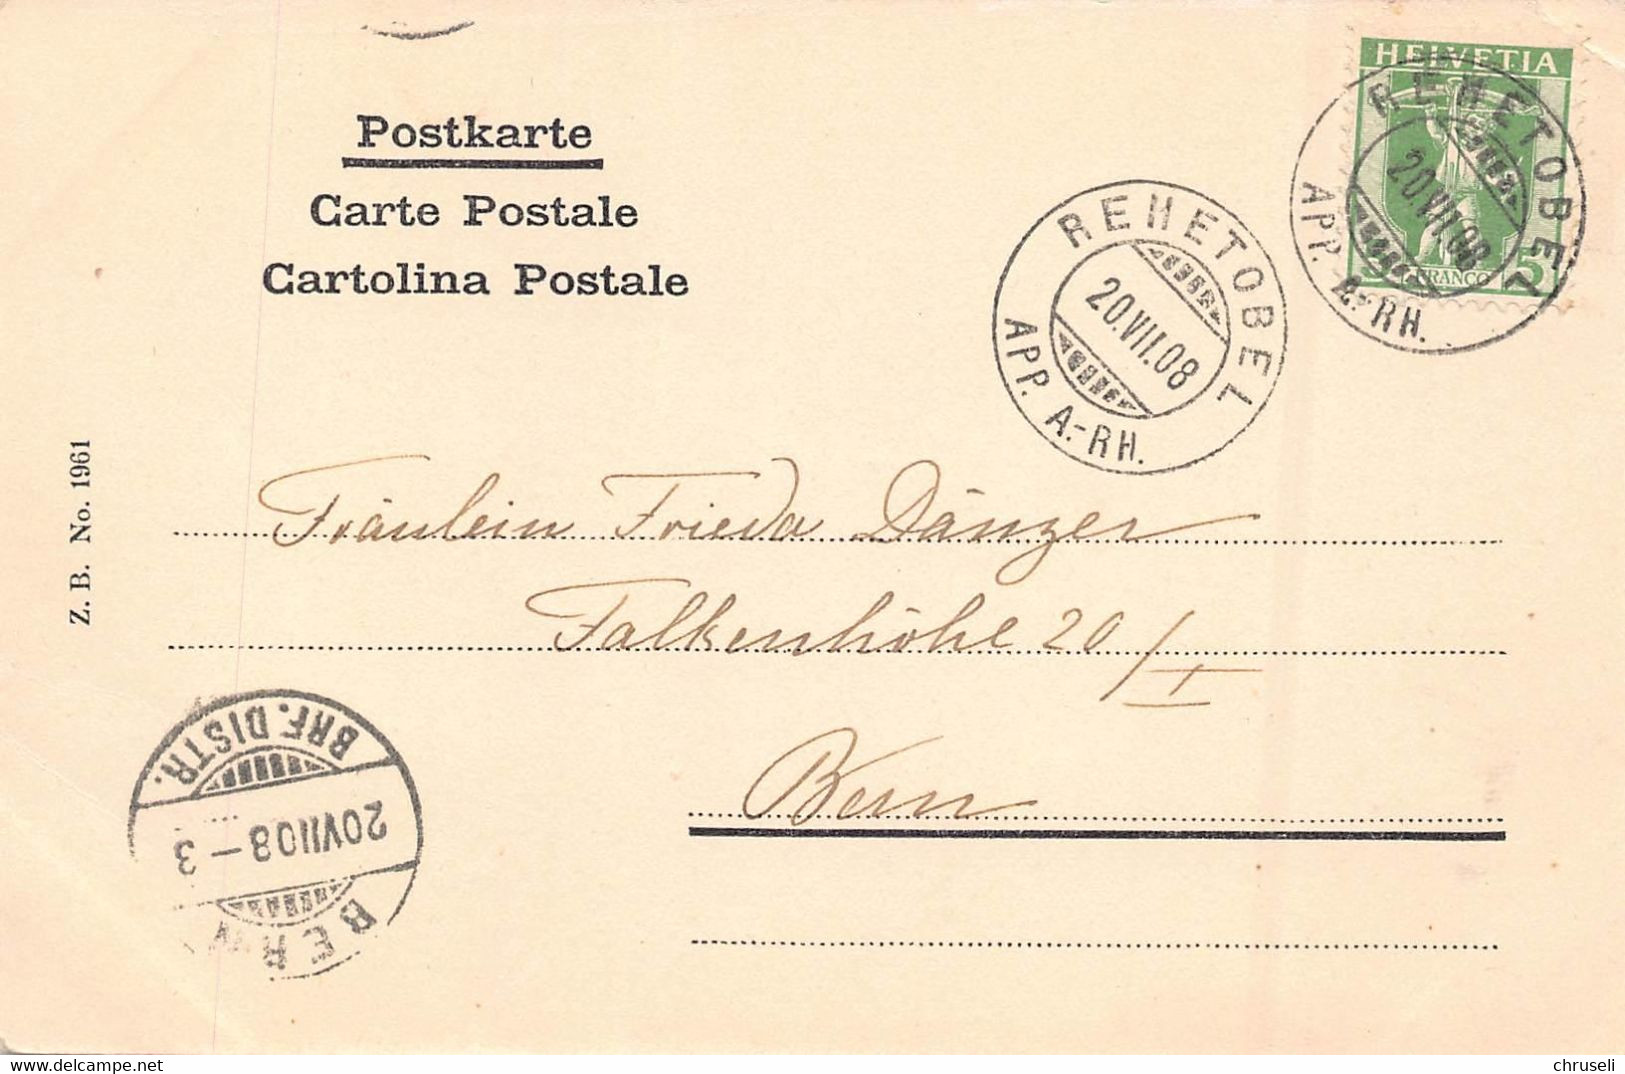 HELVETIA
FRANCO 5
REHETOBEL
20.VII.08
APP. A.-RH.
Postkarte
Carte Postale
Cartolina Postale
REHETOBEL
20.VII.08
APP. A.-RH.
Z. B. No. 1961
Fräulein Frieda Dänzer
Falkenhöhe 20/I
Bern
BERN
20VII08-3
BRF. DISTR.
www.delcampe.net
chruseli